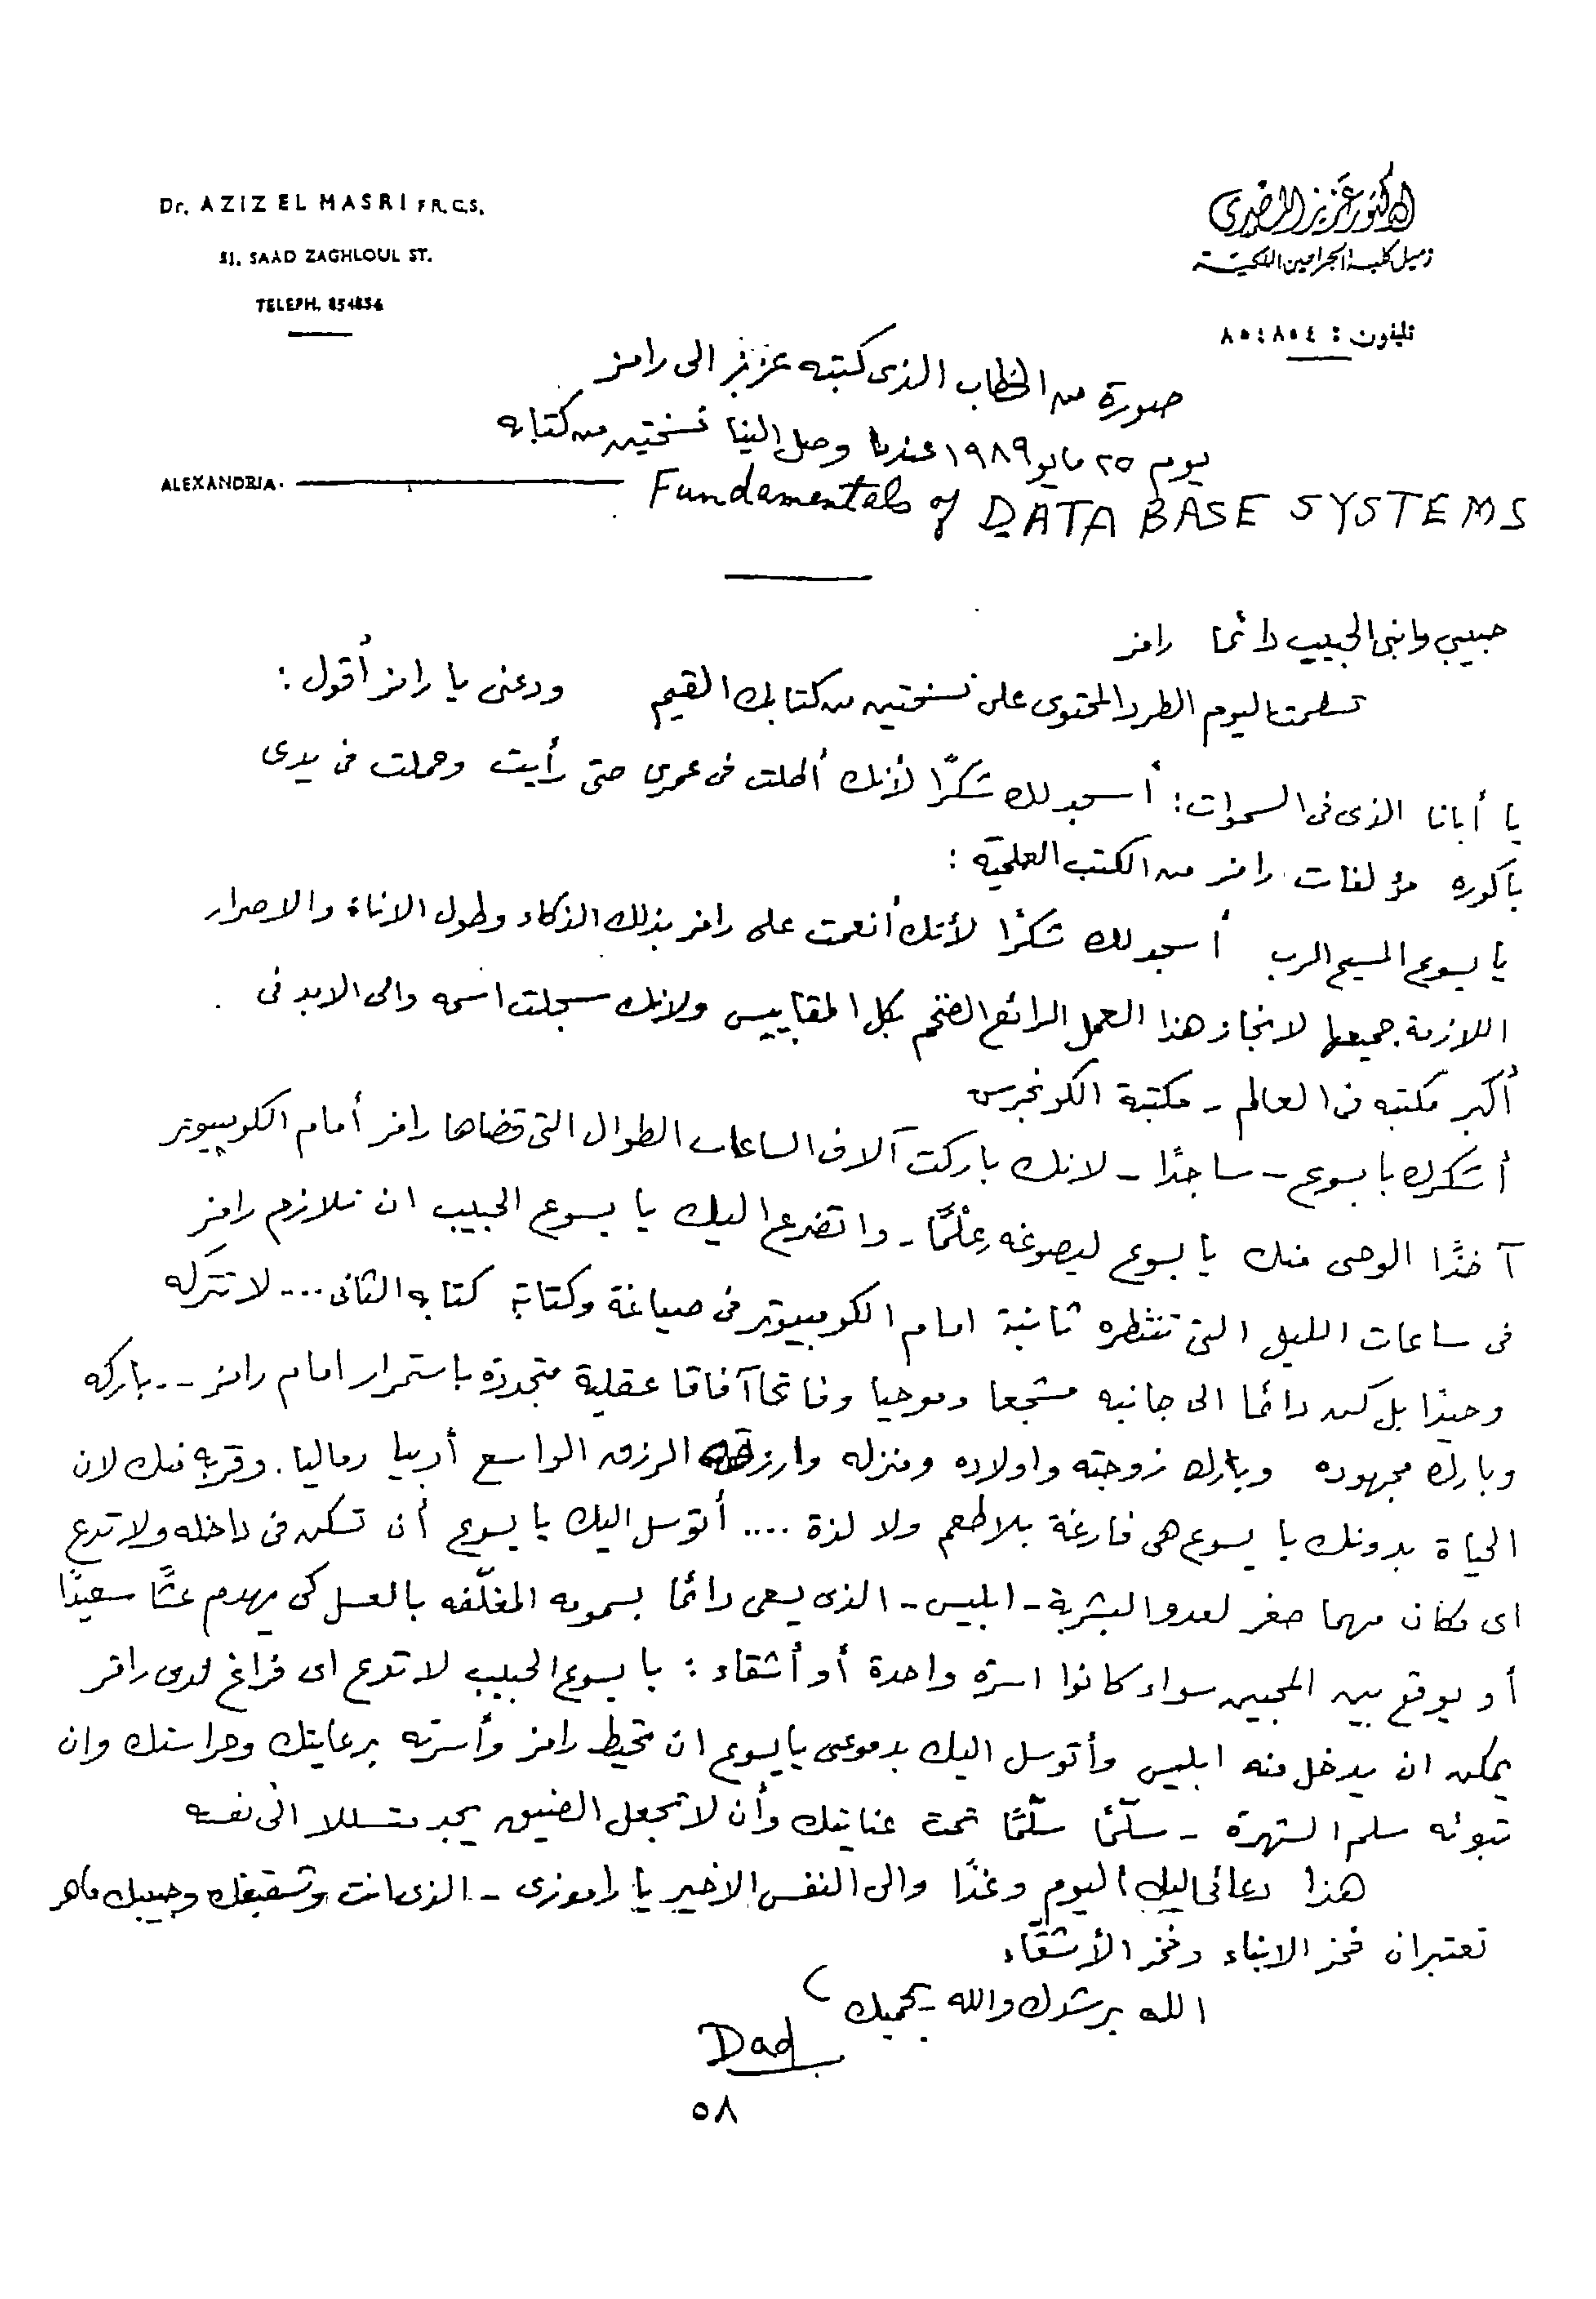 Dr. AZIZ EL MASRI F.R.C.S.
31, SAAD ZAGHLOUL ST.
TELEPH. 854854
الدكتور عزيز المصرى
زميل كلية الجراحين الملكية
تليفون : ٨٥٤٨٥٤
صورة من الخطاب الذى كتبه عزيز الى رامز
يوم ٢٥ مايو ١٩٨٩ عندما وصل الينا نسختين من كتابه
ALEXANDRIA. Fundamentals of DATA BASE SYSTEMS
حبيبى وابنى الحبيب دائما رامز
تسلمت اليوم الطرد المحتوى على نسختين من كتابك القيم ودعنى يا رامز أقول :
يا أبانا الذى فى السموات : أسجد لك شكرًا لأنك أطلت فى عمرى حتى رأيت وحملت فى يدى
باكورة مؤلفات رامز من الكتب العلميّة :
يا يسوع المسيح الرب أسجد لك شكرًا لأنك أنعمت على رامز بذلك الذكاء وطول الاناة والاصرار
اللازمة جميعها لانجاز هذا العمل الرائع الضخم بكل المقاييس ولانك سجلت اسمه والى الابد فى
أكبر مكتبه فى العالم - مكتبة الكونجرس
أشكرك يا يسوع - ساجدًا - لانك باركت آلاف الساعات الطوال التى قضاها رامز أمام الكومبيوتر
آخذًا الوحى منك يا يسوع ليصوغه عِلْمًا - واتضرع اليك يا يسوع الحبيب ان تلازم رامز
فى ساعات الليل التى تنتظره ثانية امام الكومبيوتر فى صياغة وكتابة كتابه الثانى .... لا تتركه
وحيدًا بل كن دائما الى جانبه مشجعا وموحيا وفاتحا آفاقا عقلية متجددة باستمرار امام رامز ... باركه
وبارك مجهوده وبارك زوجته واولاده ومنزله وارزقه الرزق الواسع أدبيا وماليا . وقربه منك لان
الحياة بدونك يا يسوع هى فارغة بلا طعم ولا لذة .... أتوسل اليك يا يسوع أن تسكن فى داخله ولا تدع
اى مكان مهما صغر لعدو البشرية - ابليس - الذى يسعى دائما بسمومه المغلّفه بالعسل كى يهدم عشًا سعيدًا
أو يوقع بين المحبين سواء كانوا اسرة واحدة أو أشقاء : يا يسوع الحبيب لا تدع اى فراغ لدى رامز
يمكن ان يدخل منه ابليس وأتوسل اليك بدموعى يا يسوع ان تحيط رامز وأسرته برعايتك وحراستك وان
تبوئه سلم الشهرة - سلّمًا سلّمًا تحت عنايتك وأن لا تجعل الضيق يجد متسللا الى نفسه
هذا دعائى اليك اليوم وغدًا والى النفس الاخير يا راموزى - الذى انت وشقيقك وحبيبك ماهر
تعتبران فخر الابناء وفخر الأشقّاء
الله يرشدك والله يحميك
Dad
٥٨